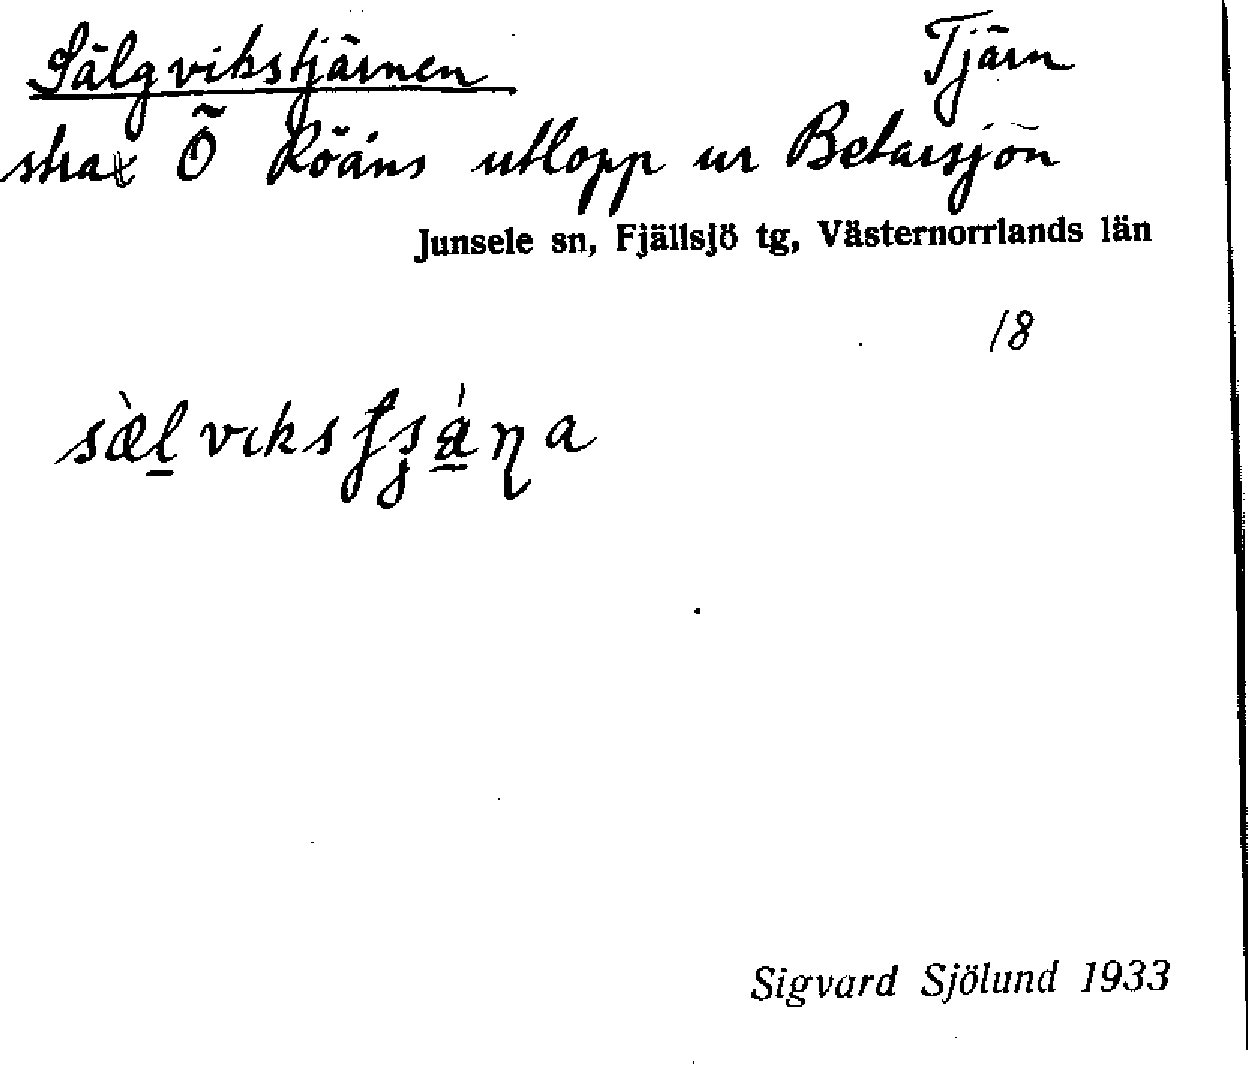 Sälgvikstjärnen Tjärn
strax Ö Röåns utlopp ur Betarsjön
Junsele sn, Fjällsjö tg, Västernorrlands län
18
Sigvard Sjölund 1933